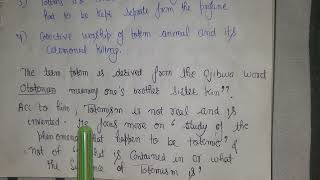 3) Totems as
had to be kept seperate from the profane
4) Collective worship of totem animal and its
Ceremonial killing.
The term totem is derived from the Ojibwa word
Ototoman meaning one's brother sister kin??.
Acc to him, Totomism is not real and is
invented. He focus more on "study of the
phenomena that happen to be totemic" &
not of "What is Contained in or what
the Substance of Totomism is"